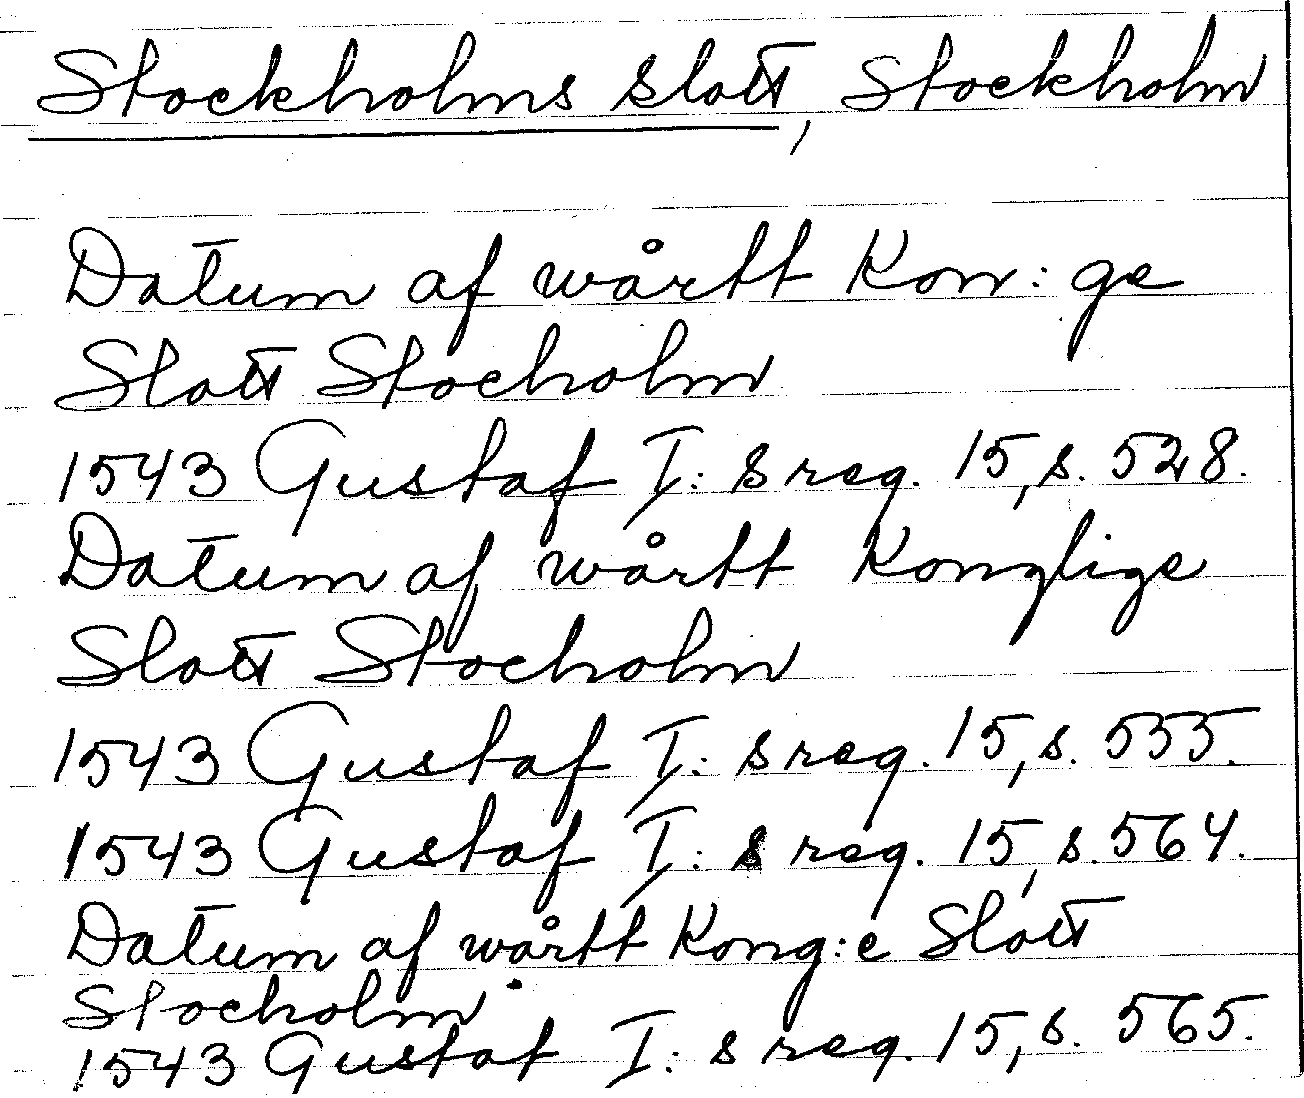 Stockholms slott, Stockholm
Datum af wårtt Kon: ge
Slott Stocholm
1543 Gustaf I: s reg. 15, s. 528.
Datum af wårtt Konglige
Slott Stocholm
1543 Gustaf I: s reg. 15, s. 535.
1543 Gustaf I: s reg. 15, s. 564.
Datum af wårtt Kong:e Slott
Stocholm
1543 Gustaf I: s reg. 15, s. 565.